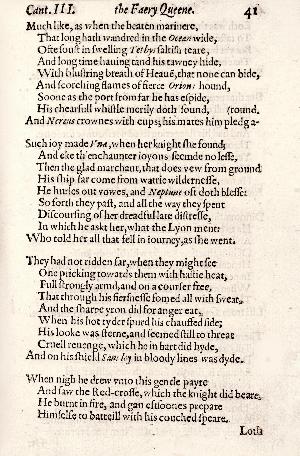 Cant. III.   the Faery Queene.   41
Much like, as when the beaten marinere,
That long hath wandred in the Ocean wide,
Ofte soust in swelling Tethys saltish teare,
And long time hauing tand his tawney hide,
With blustring breath of Heauē, that none can bide,
And scorching flames of fierce Orions hound,
Soone as the port from far he has espide,
His chearfull whistle merily doth sound, (round.
And Nereus crownes with cups; his mates him pledg a-
Such ioy made Vna, when her knight she found;
And eke th'enchaunter ioyous seemde no lesse,
Then the glad marchant, that does vew from ground
His ship far come from watrie wildernesse,
He hurles out vowes, and Neptune oft doth blesse:
So forth they past, and all the way they spent
Discoursing of her dreadful late distresse,
In which he askt her, what the Lyon ment:
Who told her all that fell in iourney, as she went.
They had not ridden far, when they might see
One pricking towards them with hastie heat,
Full strongly armd, and on a courser free,
That through his fiersnesse fomed all with sweat,
And the sharpe yron did for anger eat,
When his hot ryder spurd his chauffed side;
His looke was sterne, and seemed still to threat
Cruell reuenge, which he in hart did hyde,
And on his shield Sans loy in bloody lines was dyde.
When nigh he drew vnto this gentle payre
And saw the Red-crosse, which the knight did beare,
He burnt in fire, and gan eftsoones prepare
Himselfe to batteill with his couched speare.
Loth